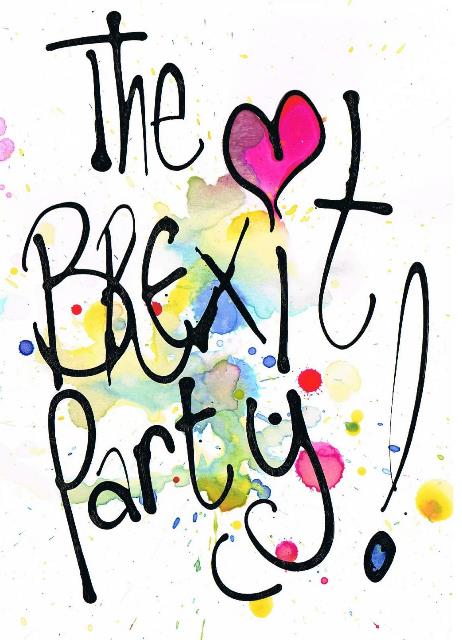 The
BREXit
Party!